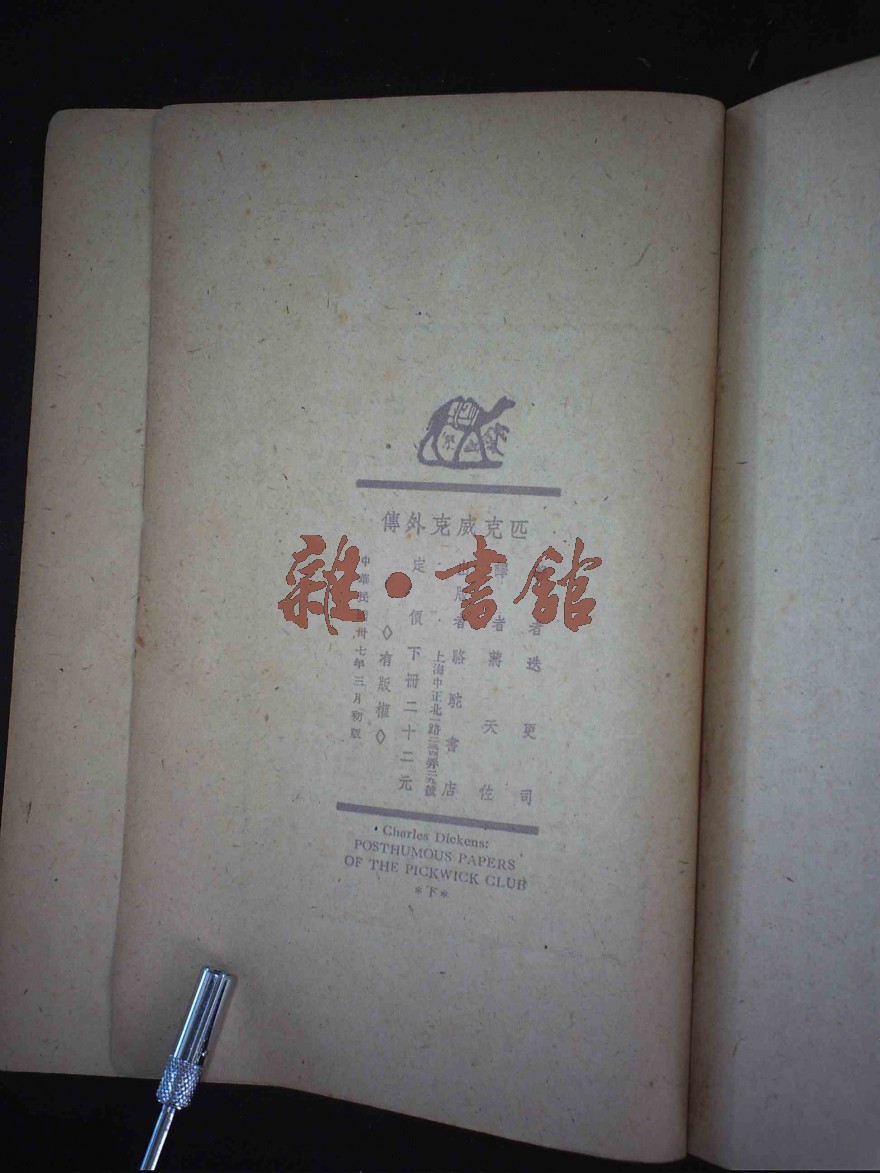 匹克威克外傳
者 迭更司
譯者 蔣天佐
出版者 駱駝書店
上海中正北一路
定價下冊二十二元
◇有版權◇
中華民國卅七年三月初版
Charles Dickens:
POSTHUMOUS PAPERS
OF THE PICKWICK CLUB
*下*
雜·書館